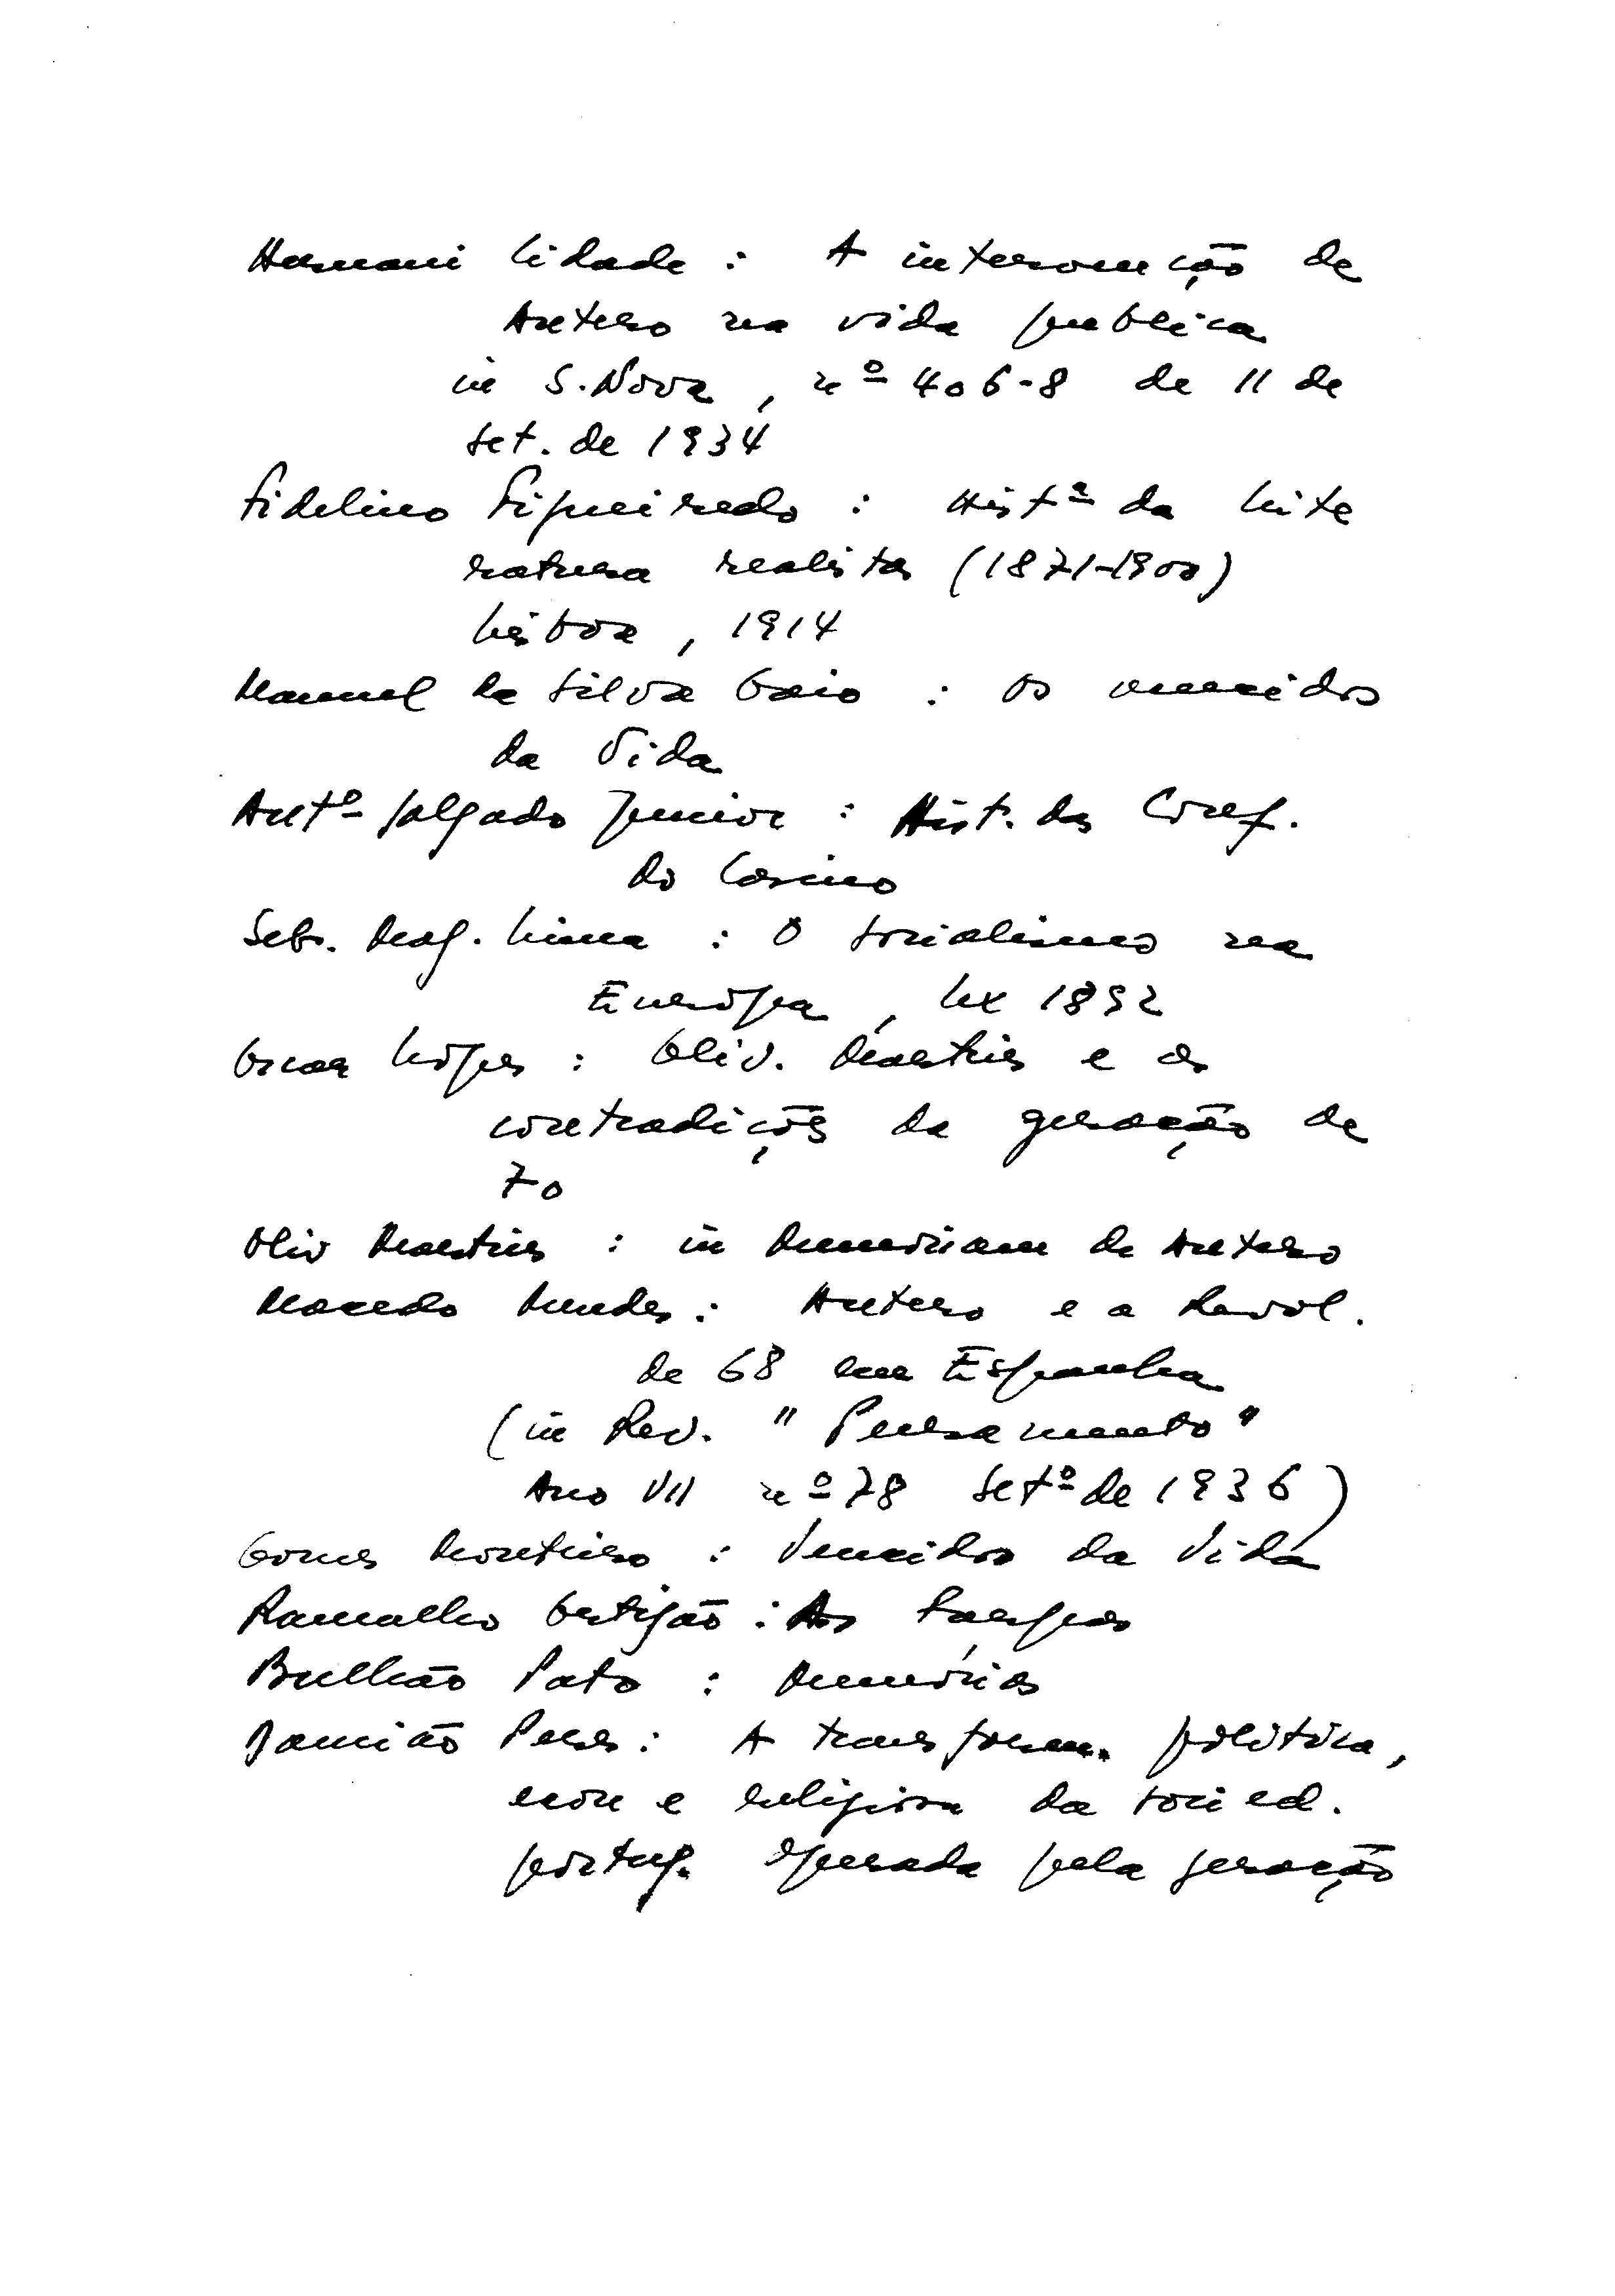 Hernani Cidade : A intervenção de
Antero na vida publica
in S. Nova, nº 406-8 de 11 de
Set. de 1934
Fidelino Figueiredo : Histª da Lite
ratura realista (1871-1900)
Lisboa, 1914
Manuel da Silva Gaio : Os vencidos
da Vida
Antº Salgado Junior : Hist. das Conf.
do Casino
Seb. Mag. Lima : O socialismo na
Europa, Lx 1892
Oscar Lopes : Oliv. Martins e as
contradições da geração de
70
Oliv Martins : in Memoriam de Antero
Macedo Mendes : Antero e a Revol.
de 68 em Espanha
(in Rev. "Pensamento"
Ano VII nº 78 Setº de 1936)
Gomes Monteiro : Vencidos da Vida
Ramalho Ortigão : As Farpas
Bulhão Pato : Memórias
Damião Peres : A transform. política,
econ e religiosa da socied.
portug. operada pela geração